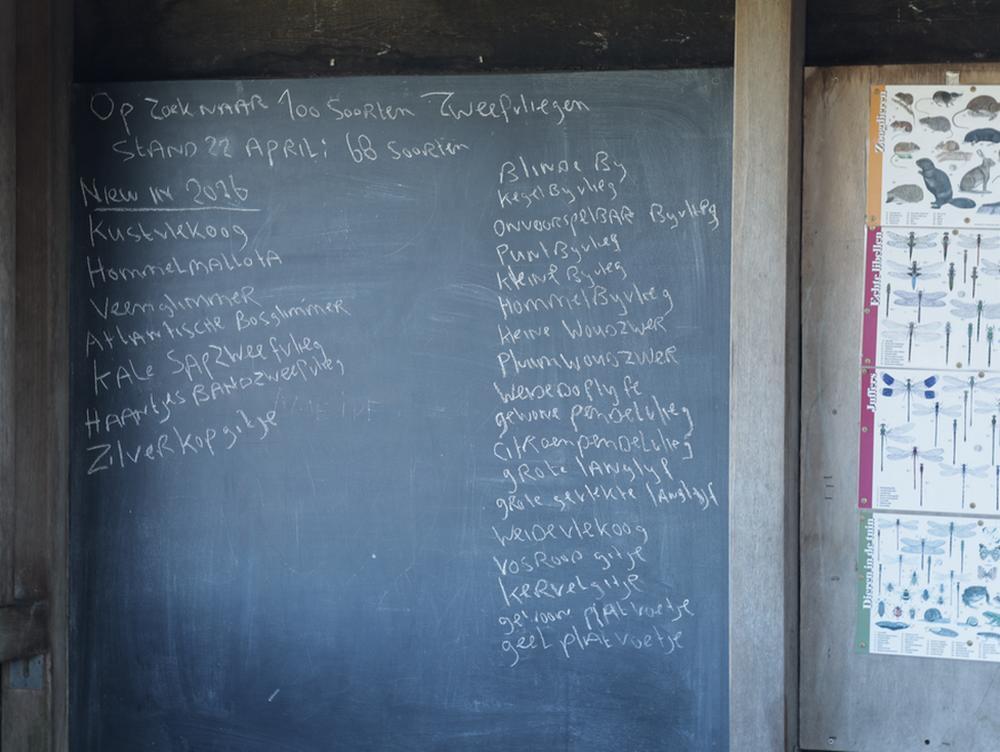 Op Zoek NAAR 100 Soorten Zweefvliegen
STAND 22 APRIL: 68 Soorten
Niew in 2026
Kustvlekoog
HommelmALLotA
Veenglimmer
Atlantische Bosglimmer
KALe SAPZweefvlieg
HAAntjes BANDzweefvlieg
Zilverkopgitje
Blinde By
KegelByvlieg
OnvoorspelBAR Byvlieg
PuntByvlieg
kleine Byvlieg
HommelByvlieg
Heine Woudzwever
Pluimwoudzwever
Weidedoflyfje
gewone pendelvlieg
CitRoenpendelvlieg
gRote lAnglyf
gRote gevlekte lAnglyf
Weidevlekoog
VosRood gitje
KeRvelgitje
gewoon plAtvoetje
geel plAtvoetje
Zoogdieren
Echte libellen
Juffers
Dieren in de tuin